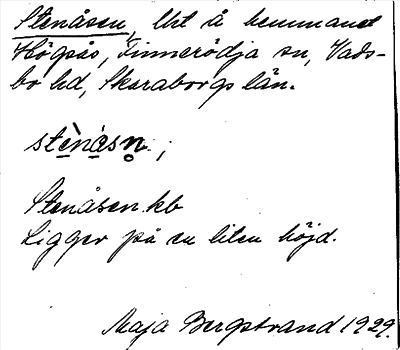 Stenåsen, lht å hemmanet
Högsås, Finnerödja sn, Vads-
bo hd, Skaraborgs län.
ste̱̊̀nå̱sn̥. ;
Stenåsen kb
Ligger på en liten höjd.
Maja Bergstrand 1929.